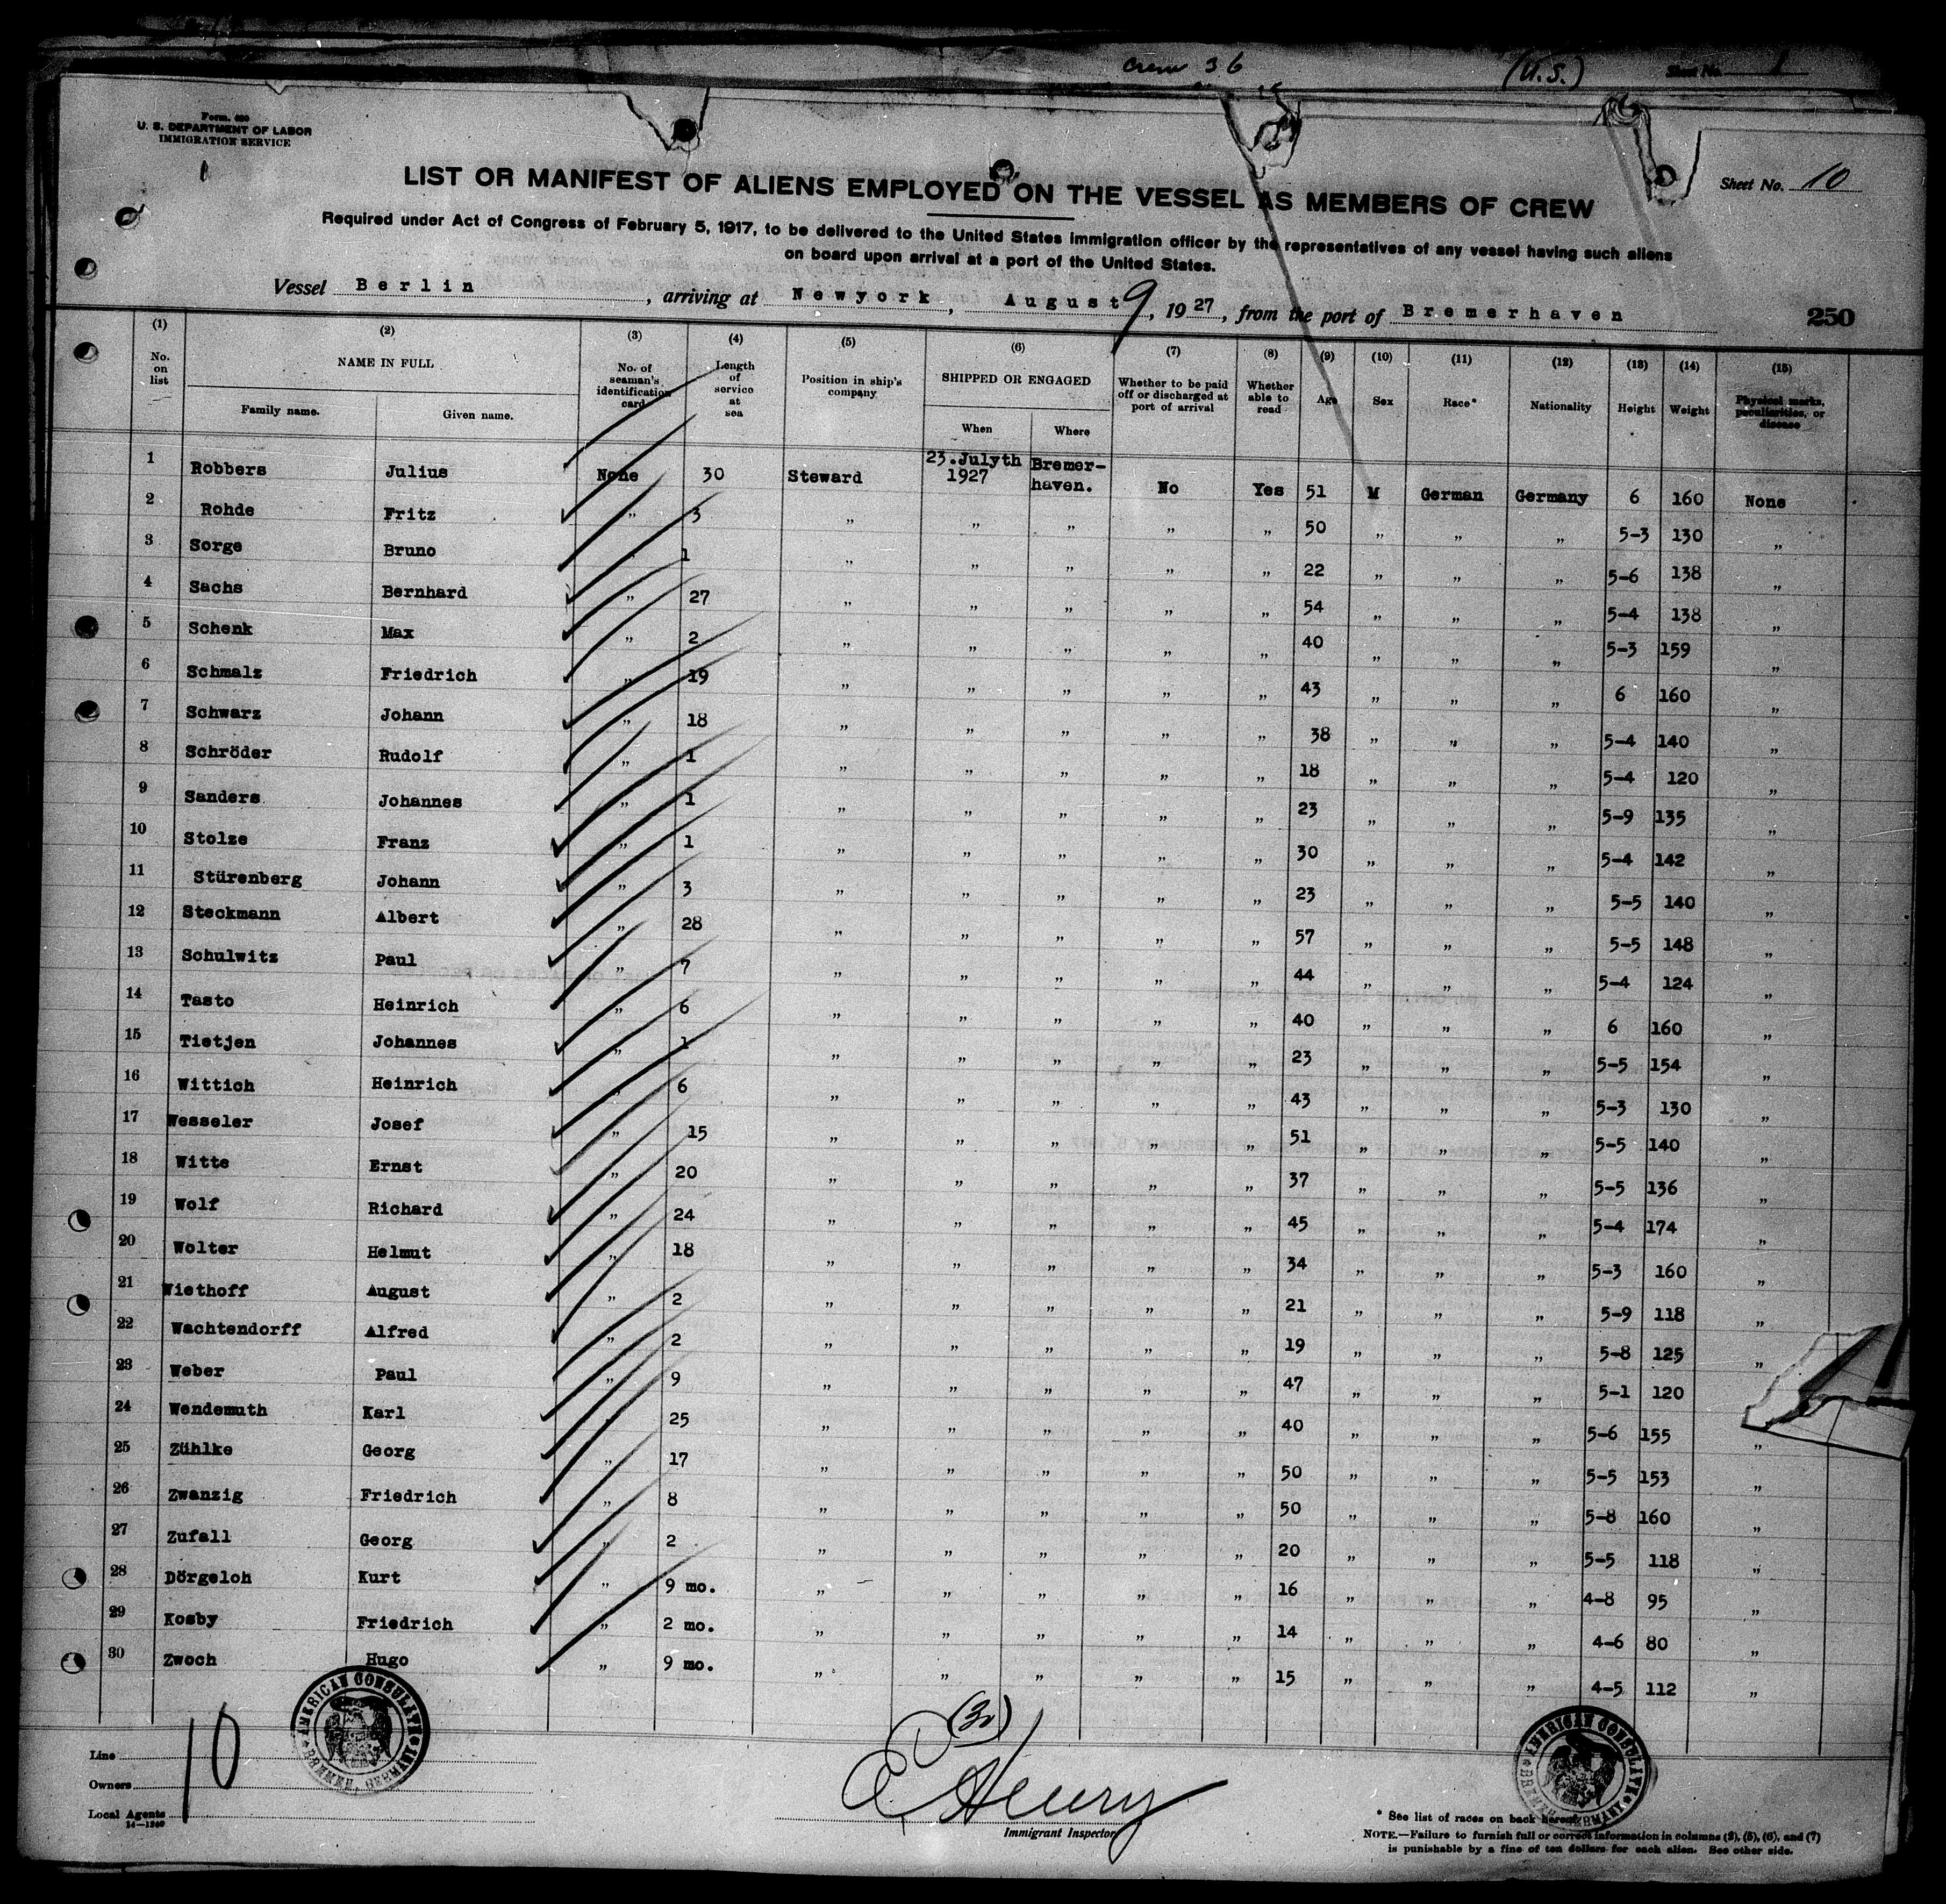 Crew 36 (U.S.) Sheet No. 1
Form 680
U. S. DEPARTMENT OF LABOR
IMMIGRATION SERVICE
Sheet No. 10
LIST OR MANIFEST OF ALIENS EMPLOYED ON THE VESSEL AS MEMBERS OF CREW
Required under Act of Congress of February 5, 1917, to be delivered to the United States immigration officer by the representatives of any vessel having such aliens
on board upon arrival at a port of the United States.
Vessel Berlin, arriving at Newyork, August 9, 1927, from the port of Bremerhaven
250
(1) (2) (3) (4) (5) (6) (7) (8) (9) (10) (11) (12) (13) (14) (15)
No. on list NAME IN FULL Family name. Given name. No. of seaman's identification card Length of service at sea Position in ship's company SHIPPED OR ENGAGED When Where Whether to be paid off or discharged at port of arrival Whether able to read Age Sex Race* Nationality Height Weight Physical marks, peculiarities, or disease
1 Robbers Julius None 30 Steward 23.Julyth 1927 Bremer-haven. No Yes 51 M German Germany 6 160 None
2 Rohde Fritz „ 3 „ „ „ „ „ 50 „ „ „ 5-3 130 „
3 Sorge Bruno 1 „ „ „ „ „ 22 „ „ „ 5-6 138 „
4 Sachs Bernhard „ 27 „ „ „ „ „ 54 „ „ „ 5-4 138 „
5 Schenk Max „ 2 „ „ „ „ „ 40 „ „ „ 5-3 159 „
6 Schmalz Friedrich „ 19 „ „ „ „ „ 43 „ „ „ 6 160 „
7 Schwarz Johann „ 18 „ „ „ „ „ 38 „ „ „ 5-4 140 „
8 Schröder Rudolf „ 1 „ „ „ „ „ 18 „ „ „ 5-4 120 „
9 Sanders Johannes „ 1 „ „ „ „ „ 23 „ „ „ 5-9 135 „
10 Stolze Franz „ 1 „ „ „ „ „ 30 „ „ „ 5-4 142 „
11 Stürenberg Johann „ 3 „ „ „ „ „ 23 „ „ „ 5-5 140 „
12 Steckmann Albert „ 28 „ „ „ „ „ 57 „ „ „ 5-5 148 „
13 Schulwitz Paul „ 7 „ „ „ „ „ 44 „ „ „ 5-4 124 „
14 Tasto Heinrich „ 6 „ „ „ „ „ 40 „ „ „ 6 160 „
15 Tietjen Johannes „ 1 „ „ „ „ „ 23 „ „ „ 5-5 154 „
16 Wittich Heinrich „ 6 „ „ „ „ „ 43 „ „ „ 5-3 130 „
17 Wesseler Josef „ 15 „ „ „ „ „ 51 „ „ „ 5-5 140 „
18 Witte Ernst „ 20 „ „ „ „ „ 37 „ „ „ 5-5 136 „
19 Wolf Richard „ 24 „ „ „ „ „ 45 „ „ „ 5-4 174 „
20 Wolter Helmut „ 18 „ „ „ „ „ 34 „ „ „ 5-3 160 „
21 Wiethoff August „ 2 „ „ „ „ „ 21 „ „ „ 5-9 118 „
22 Wachtendorff Alfred „ 2 „ „ „ „ „ 19 „ „ „ 5-8 125 „
23 Weber Paul „ 9 „ „ „ „ „ 47 „ „ „ 5-1 120 „
24 Wendemuth Karl 25 „ „ „ „ „ 40 „ „ „ 5-6 155 „
25 Zühlke Georg „ 17 „ „ „ „ „ 50 „ „ „ 5-5 153 „
26 Zwanzig Friedrich „ 8 „ „ „ „ „ 50 „ „ „ 5-8 160 „
27 Zufall Georg „ 2 „ „ „ „ „ 20 „ „ „ 5-5 118 „
28 Dörgeloh Kurt „ 9 mo. „ „ „ „ „ 16 „ „ „ 4-8 95 „
29 Kosby Friedrich „ 2 mo. „ „ „ „ „ 14 „ „ „ 4-6 80 „
30 Zwoch Hugo „ 9 mo. „ „ „ „ „ 15 „ „ „ 4-5 112 „
(30)
10
AMERICAN CONSULATE BREMEN, GERMANY
AMERICAN CONSULATE BREMEN, GERMANY
Line
Owners
Local Agents
14-1240
Henry
Immigrant Inspector
* See list of races on back hereof.
NOTE.—Failure to furnish full or correct information in columns (2), (5), (6), and (7)
is punishable by a fine of ten dollars for each alien. See other side.